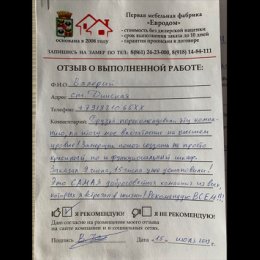 Первая мебельная фабрика
"Евродом"
- стоимость без дилерской наценки
- срок выполнения заказа до 10 дней
- гарантия прописана в договоре
основана в 2008 году
ЗАПИШИСЬ НА ЗАМЕР ПО ТЕЛ: 8(861) 26-23-000, 8(918) 14-94-111
ОТЗЫВ О ВЫПОЛНЕННОЙ РАБОТЕ:
Ф.И.О. Валерий
Адрес: ст. Динская
Телефон: +7918210 66XX
Комментарий: Друзья порекомендовали эту компанию,
по этому мое впечатление на высшем
уровне! Замерщик помог создать не просто
красивый, но и функциональный шкаф.
Заказал 9 июня, 15 июля уже установили!
Это САМАЯ добросовестная компания из всех,
которых я встречал в жизни! Рекомендую ВСЕМ!!!
Я РЕКОМЕНДУЮ! Я НЕ РЕКОМЕНДУЮ!
Даю согласие на размещение моего отзыва
на сайте компании и в социальных сетях.
Подпись Дата «15» июля